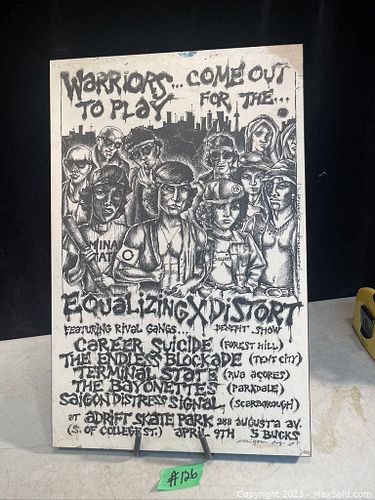 WARRIORS... COME OUT
TO PLAY FOR THE...
MINA
TAT
EQUALIZING X DISTORT
FEATURING RIVAL GANGS... BENEFIT SHOW
CAREER SUICIDE (FOREST HILL)
THE ENDLESS BLOCKADE (TENT CITY)
TERMINAL STATE (RUA AÇORES)
THE BAYONETTES (PARKDALE)
SAIGON DISTRESS SIGNAL (SCARBOROUGH)
AT ADRIFT SKATE PARK 288 AUGUSTA AV.
(S. OF COLLEGE ST.) APRIL 9TH 5 BUCKS
#126
Copyright 2023 - MaxSold.com